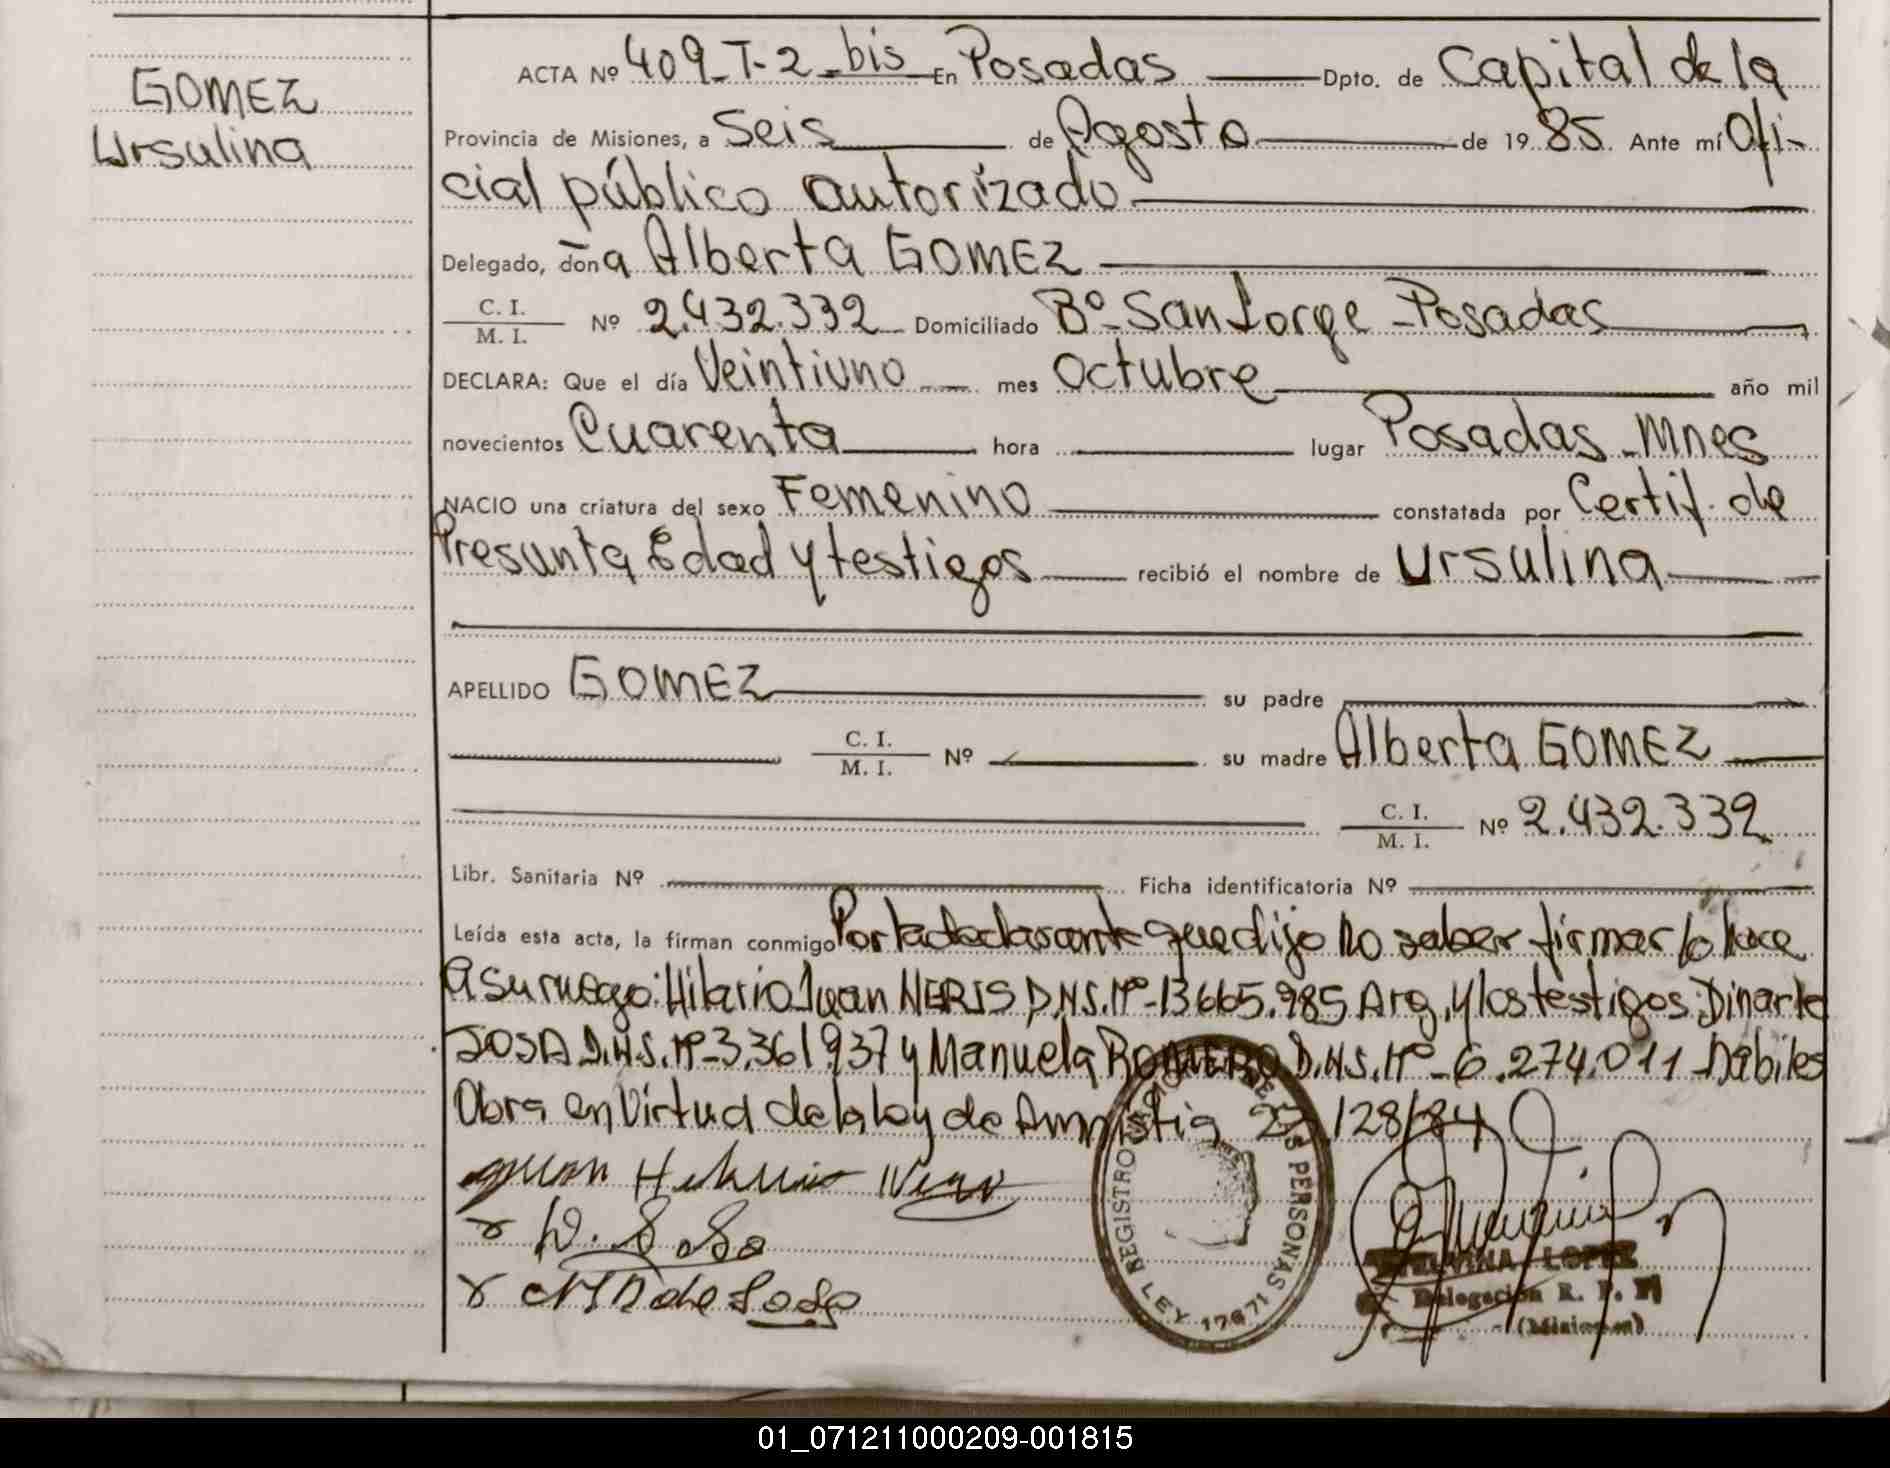 GOMEZ
Ursulina
ACTA Nº 409-T-2-bis En Posadas Dpto. de Capital de la
Provincia de Misiones, a Seis de Agosto de 1985. Ante mí Ofi-
cial público autorizado
Delegado, doña Alberta GOMEZ
C. I.
M. I. Nº 2.432.332 Domiciliado Bº San Jorge - Posadas
DECLARA: Que el día Veintiuno mes Octubre año mil
novecientos Cuarenta hora lugar Posadas - Mnes
NACIO una criatura del sexo Femenino constatada por Certif. de
Presunta Edad y testigos recibió el nombre de Ursulina
APELLIDO GOMEZ su padre
C. I.
M. I. Nº su madre Alberta GOMEZ
C. I.
M. I. Nº 2.432.332
Libr. Sanitaria Nº Ficha identificatoria Nº
Leída esta acta, la firman conmigo Por la declarante que dijo no saber firmar lo hace
a su ruego: Hilario Juan NERIS D.N.I. Nº-13665.985 Arg. y los testigos: Dinarte
SOSA D.N.I. Nº-3.361937 y Manuela ROMERO D.N.I. Nº-6.274.011 - Hábiles
Obra en Virtud de la ley de Amnistia 23.128/84
REGISTRO PERSONAS
LEY 17671
LOPEZ
Delegación R. P.
(Misiones)
01_071211000209-001815